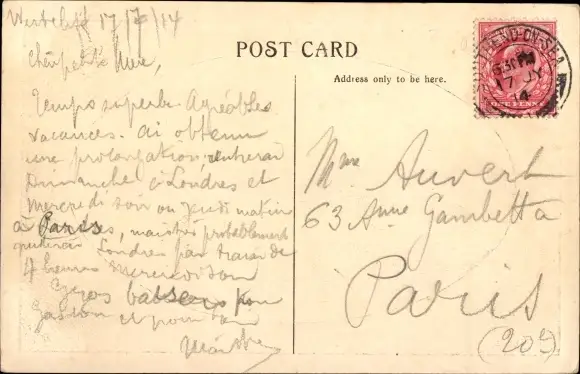 Westcliff 17/7/14
POST CARD
Address only to be here.
Chère petite Mère,
Temps superbe. Agréables
vacances. Ai obtenu
une prolongation; rentrerai
Dimanche à Londres et
Mercredi soir ou Jeudi matin
à Paris, mais probablement
Londres par train de
4 heures Mercredi
Gros baisers pour
Gaston et pour
Mme Auvert
63 Ave Gambetta
Paris
(20e)
SOUTHEND-ON-SEA
5.30 PM
17 JY
14
ONE PENNY